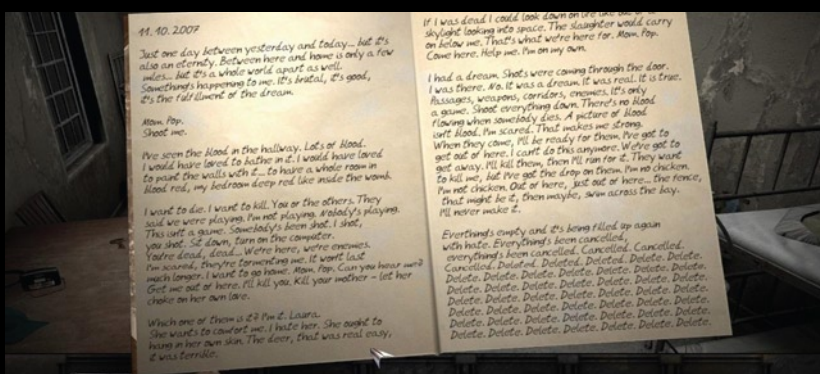 11.10.2007
Just one day between yesterday and today... but it's
also an eternity. Between here and home is only a few
miles... but it's a whole world apart as well.
Something's happening to me. It's brutal, it's good,
it's the fulfillment of the dream.
Mom. Pop.
Shoot me.
I've seen the blood in the hallway. Lots of blood.
I would have loved to bathe in it. I would have loved
to paint the walls with it... to have a whole room in
blood red, my bedroom deep red like inside the womb.
I want to die. I want to kill. You or the others. They
said we were playing. I'm not playing. Nobody's playing.
This isn't a game. Somebody's been shot. I shot,
you shot. Sit down, turn on the computer.
You're dead, dead... We're here, we're enemies.
I'm scared, they're tormenting me. It won't last
much longer. I want to go home. Mom. Pop. Can you hear me?
Get me out of here. I'll kill you. Kill your mother - let her
choke on her own love.
Which one of them is it? I'm it. Laura.
She wants to comfort me. I hate her. She ought to
hang in her own skin. The deer, that was real easy,
it was terrible.
If I was dead I could look down on life like out of a
skylight looking into space. The slaughter would carry
on below me. That's what we're here for. Mom. Pop.
Come here. Help me. I'm on my own.
I had a dream. Shots were coming through the door.
I was there. No. It was a dream. It was real. It is true.
Passages, weapons, corridors, enemies. It's only
a game. Shoot everything down. There's no blood
flowing when somebody dies. A picture of blood
isn't blood. I'm scared. That makes me strong.
When they come, I'll be ready for them. I've got to
get out of here. I can't do this anymore. We've got to
get away. I'll kill them, then I'll run for it. They want
to kill me, but I've got the drop on them. I'm no chicken.
I'm not chicken. Out of here, just out of here... the fence,
that might be it, then maybe, swim across the bay.
I'll never make it.
Everthing's empty and it's being filled up again
with hate. Everything's been cancelled,
everything's been cancelled. Cancelled. Cancelled.
Cancelled. Deleted. Deleted. Deleted. Delete. Delete.
Delete. Delete. Delete. Delete. Delete. Delete. Delete.
Delete. Delete. Delete. Delete. Delete. Delete. Delete.
Delete. Delete. Delete. Delete. Delete. Delete. Delete.
Delete. Delete. Delete. Delete. Delete. Delete. Delete.
Delete. Delete. Delete. Delete. Delete. Delete. Delete.
Delete. Delete. Delete. Delete. Delete. Delete. Delete.